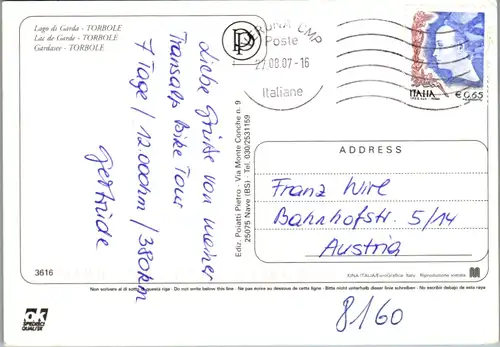 Lago di Garda - TORBOLE
Lac de Garde - TORBOLE
Gardasee - TORBOLE
PD
VERONA CMP
Poste
27.08.07-16
Italiane
ITALIA
€0,65
Liebe Grüße von meiner
Transalp Bike Tour
7 Tage / 12.000hm / 380km
Gertrude
Ediz. Poiatti Pietro - Via Monte Conche n. 9
25075 Nave (BS) - Tel. 030/2531159
ADDRESS
Franz Wirl
Bahnhofstr. 5/14
Austria
8160
3616
KINA ITALIA/EuroGrafica Italy Riproduzione vietata
Non scrivere al di sotto di questa riga - Do not write below this line - Ne pas écrire au dessous de cette ligne - Bitte nicht unterhalb dieser linie schreiben - No escribir debajo de esta raya
ok
SPEDISCI
QUALITÀ!